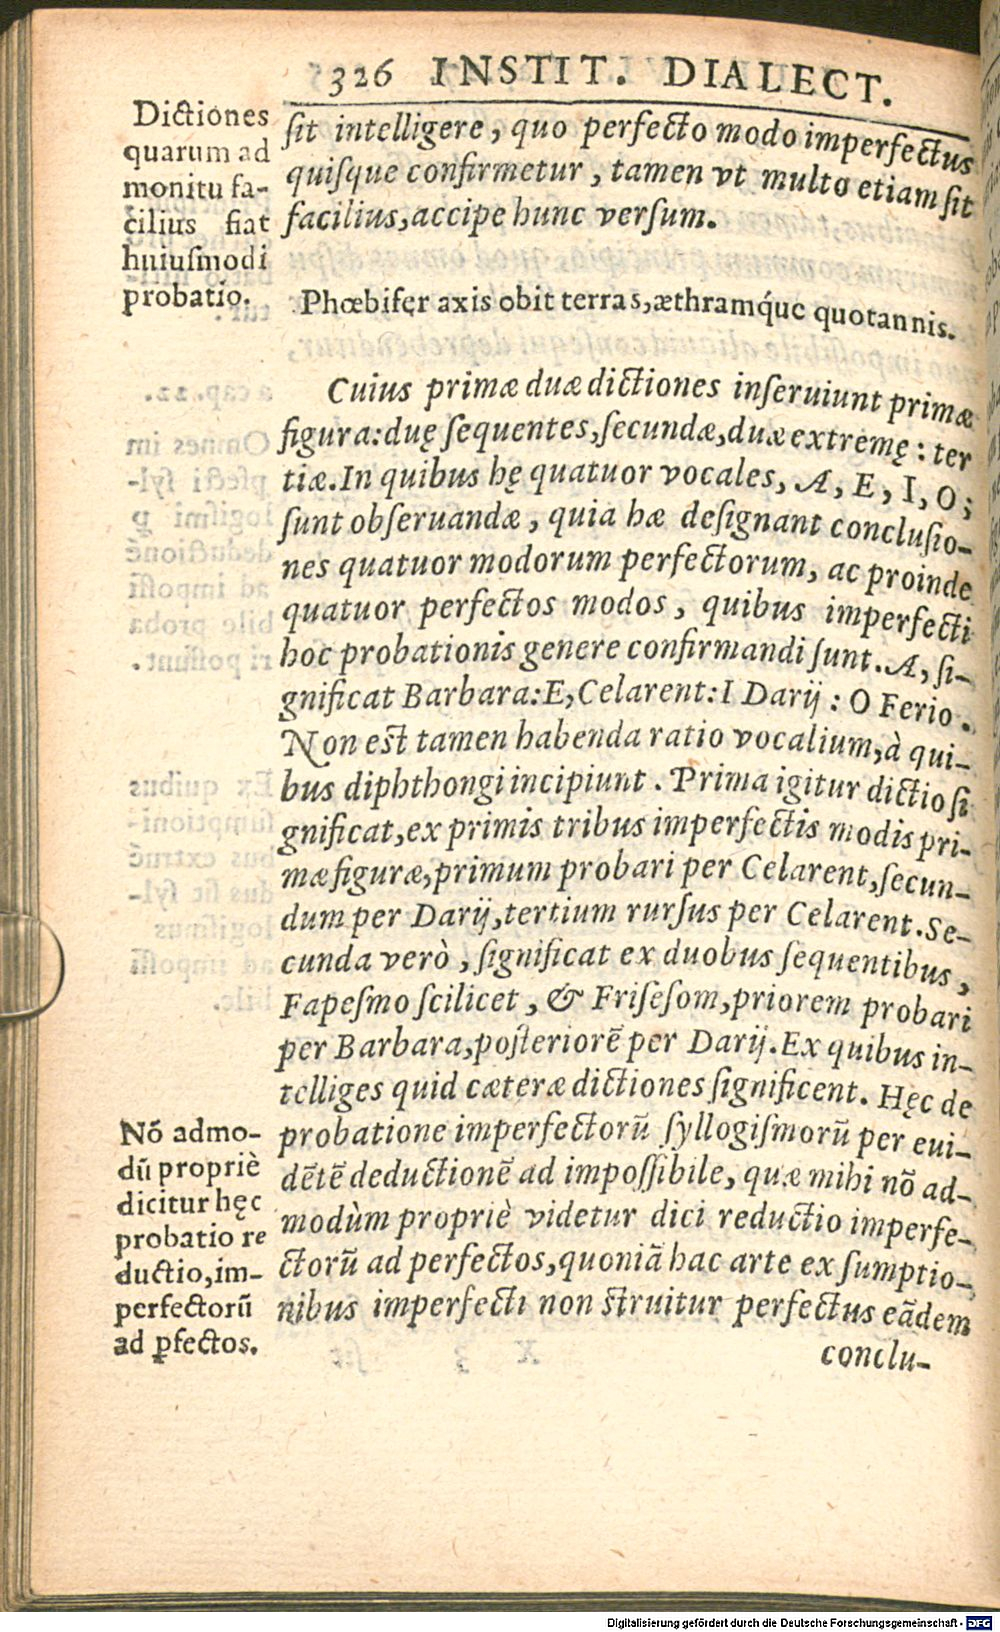 326 INSTIT. DIALECT.
Dictiones
quarum ad
monitu fa-
cilius fiat
huiusmodi
probatio.
ſit intelligere, quo perfecto modo imperfectus
quiſque confirmetur, tamen vt multo etiam ſit
facilius, accipe hunc verſum.
Phœbifer axis obit terras, æthramq́ue quotannis.
Cuius primæ duæ dictiones inſeruiunt primæ
figura: duę ſequentes, ſecundæ, duæ extremę: ter
tiæ. In quibus hę quatuor vocales, A, E, I, O;
ſunt obſeruandæ, quia hæ deſignant concluſio-
nes quatuor modorum perfectorum, ac proinde
quatuor perfectos modos, quibus imperfecti
hoc probationis genere confirmandi ſunt. A, ſi-
gnificat Barbara: E, Celarent: I Darij: O Ferio.
Non eſt tamen habenda ratio vocalium, à qui-
bus diphthongi incipiunt. Prima igitur dictio ſi
gnificat, ex primis tribus imperfectis modis pri-
mæ figuræ, primum probari per Celarent, ſecun-
dum per Darij, tertium rurſus per Celarent. Se-
cunda verò, ſignificat ex duobus ſequentibus,
Fapeſmo ſcilicet, & Friſeſom, priorem probari
per Barbara, poſteriorē per Darij. Ex quibus in-
telliges quid cæteræ dictiones ſignificent. Hęc de
probatione imperfectorū ſyllogiſmorū per eui-
dētē deductionē ad impoſſibile, quæ mihi nō ad-
modùm propriè videtur dici reductio imperfe-
ctorū ad perfectos, quoniā hac arte ex ſumptio-
nibus imperfecti non ſtruitur perfectus eādem
Nō admo-
dū propriè
dicitur hęc
probatio re
ductio, im-
perfectorū
ad ꝑfectos.
conclu-
Digitalisierung gefördert durch die Deutsche Forschungsgemeinschaft - DFG